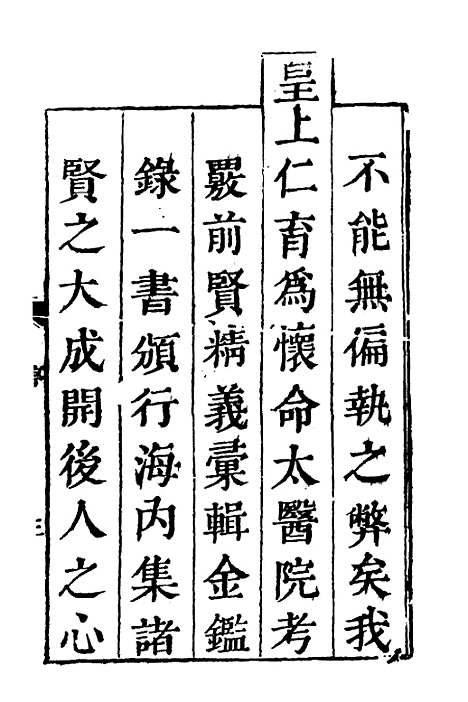 不能無偏執之弊矣我
皇上仁育為懷命太醫院考
覈前賢精義彙輯金鑑
錄一書頒行海內集諸
賢之大成開後人之心
三